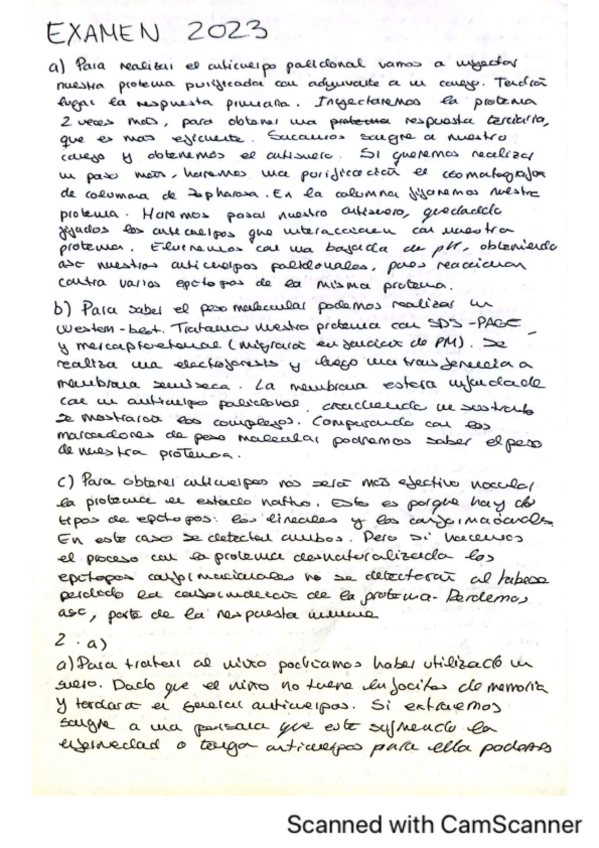 EXAMEN 2023
a) Para realizar el anticuerpo policlonal vamos a inyectar
nuestra proteina purificada con adyuvante a un conejo. Tendrá
lugar la respuesta primaria. Inyectaremos la proteina
2 veces más, para obtener una proteina respuesta terciaria,
que es más eficiente. Sacamos sangre a nuestro
conejo y obtenemos el antisuero. Si queremos realizar
un paso más, haremos una purificación
de columna de Sepharosa. En la columna fijaremos nuestra
proteina. Haremos pasar nuestro antisuero, quedando
fijados los anticuerpos que interaccionen con nuestra
proteina. Eluiremos con una bajada de pH, obteniendo
así nuestros anticuerpos policlonales, pues reaccionan
contra varios epítopos de la misma proteina.
b) Para saber el peso molecular podemos realizar un
Western-blot. Tratamos nuestra proteina con SDS-PAGE
y mercaptoetanol (migrará en función de PM). Se
realiza una electroforesis y luego una transferencia a
membrana semiseca. La membrana estará
con un anticuerpo policlonal, añadiendo un sustrato
se mostrarán los complejos. Comparando con los
marcadores de peso molecular podremos saber el peso
de nuestra proteina.
c) Para obtener anticuerpos nos será más efectivo inocular
la proteina en estado nativo. Esto es porque hay dos
tipos de epítopos: los lineales y los conformacionales.
En este caso se detectan ambos. Pero si hacemos
el proceso con la proteina desnaturalizada los
epítopos conformacionales no se detectarán al haberse
perdido la conformación de la proteina. Perdemos
así, parte de la respuesta inmune
2. a)
a) Para tratar al niño podríamos haber utilizado un
suero. Dado que el niño no tiene linfocitos de memoria
y tardará en generar anticuerpos. Si extraemos
sangre a una persona que esté sufriendo la
enfermedad o tenga anticuerpos para ella podemos
Scanned with CamScanner